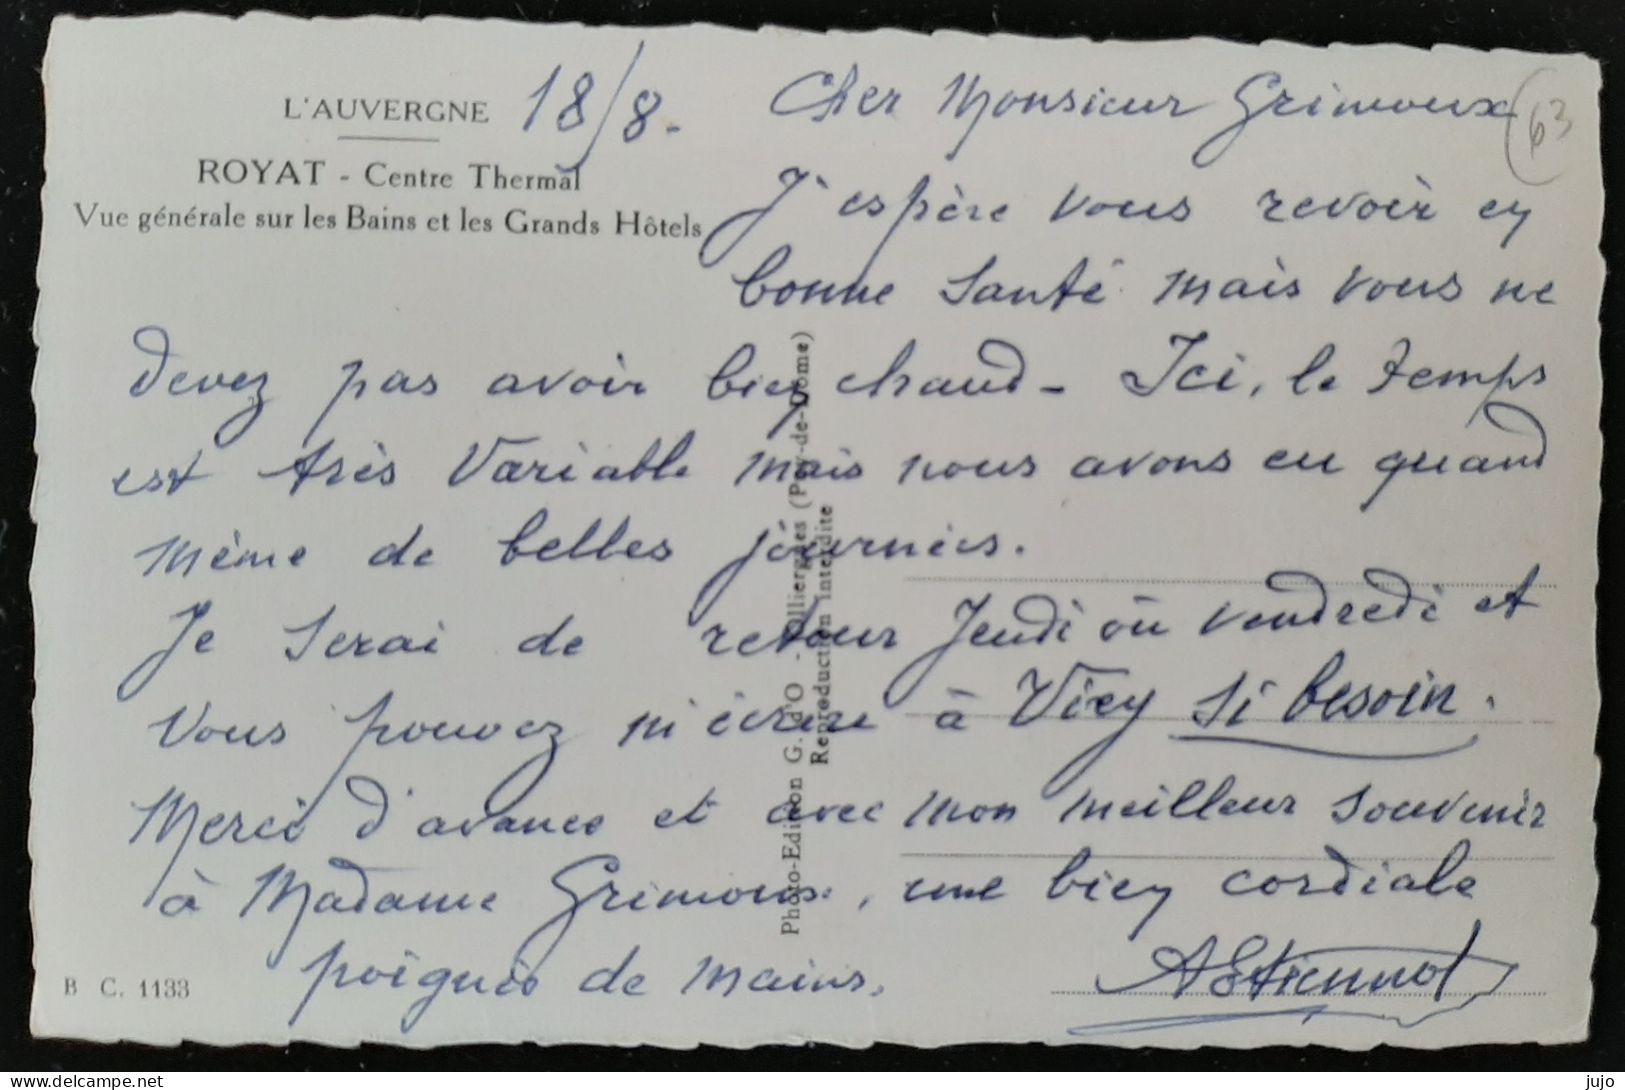 L'AUVERGNE
ROYAT - Centre Thermal
Vue générale sur les Bains et les Grands Hôtels
18/8.
63
Cher Monsieur Grimoux
J'espère vous revoir en
bonne santé mais vous ne
devez pas avoir bien chaud - Ici, le temps
est très variable mais nous avons eu quand
même de belles journées.
Je serai de retour Jeudi ou vendredi et
vous pouvez m'écrire à Vicy si besoin.
Merci d'avance et avec mon meilleur souvenir
à Madame Grimoux, une bien cordiale
poignée de mains.
AEtiennot
B C. 1133
Photo-Edition G. d'O - Olliergues (Puy-de-Dôme)
Reproduction interdite
delcampe.net
jujo